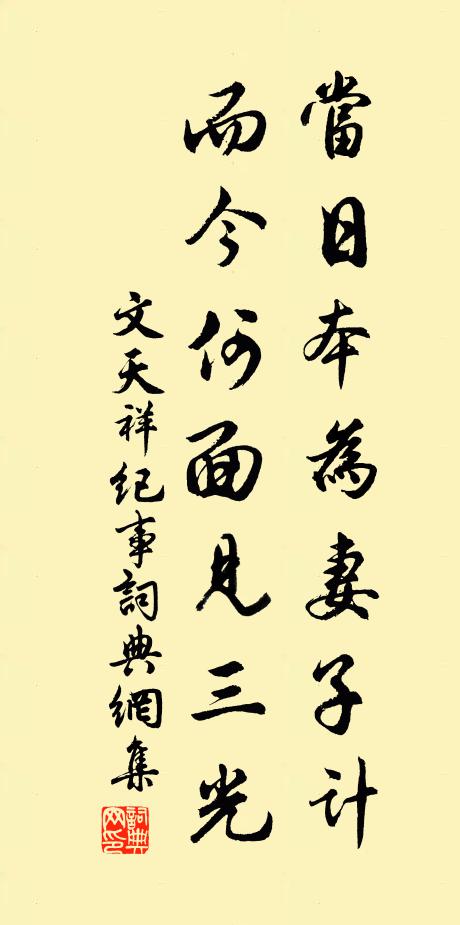 當日本為妻子計
而今何面見三光
文天祥紀事詞典網集
詞典網印